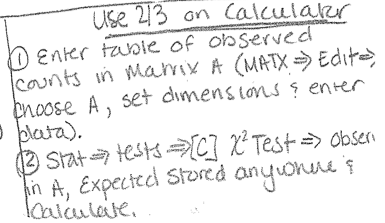 Use 2/3 on Calculator
① Enter table of observed
counts in Matrix A (MATX ⇒ Edit ⇒
choose A, set dimensions & enter
data).
② Stat ⇒ tests ⇒ [C] X² Test ⇒ Obser
in A, Expected stored anywhere &
Calculate.